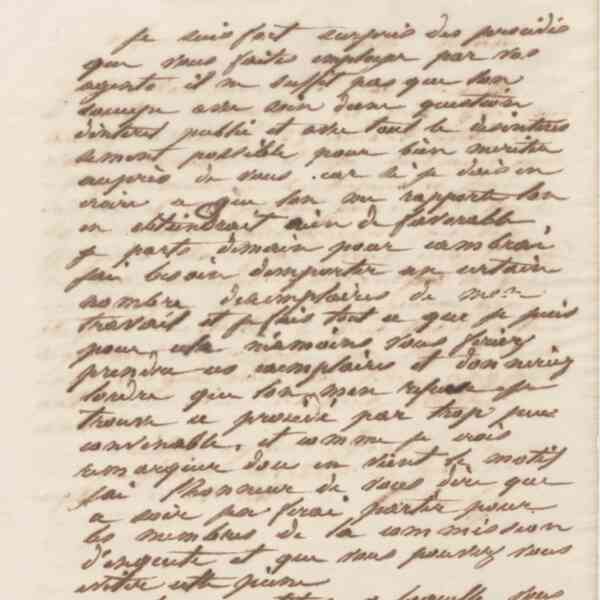 je suis fort surpris des procédés
que vous faites employer par vos
agents il ne suffit pas que lon
soccupe avec soin dune question
dinteret public et avec tout le desinteres
sement possible pour bien meriter
auprès de vous. car si je dois en
croire a que lon me rapporte lon
en obtiendrait rien de favorable
je parts demain pour cambrai
jai besoin demporter un certain
nombre dexemplaires de mon
travail et je fais tout ce que je puis
pour cela néamoins vous feriez
prendre ces exemplaires et donneriez
lordre que lon men refuse je
trouve ce procédé par trop peu
convenable, et comme je crois
remarquer dou en vient le motif
jai lhonneur de vous dire que
ce soir jen ferai partir pour
les membres de la commission
denquete et que vous pouvez vous
eviter cette peine
laquelle vous